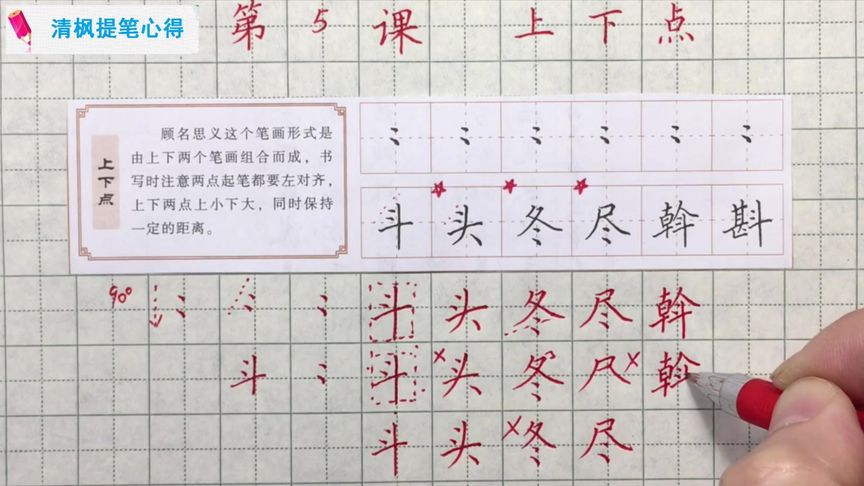 清枫提笔心得
第5课 上下点
上下点
顾名思义这个笔画形式是
由上下两个笔画组合而成，书
写时注意两点起笔都要左对齐，
上下两点上小下大，同时保持
一定的距离。
斗 头 冬 尽 斡 斟
90° 斗 头 冬 尽 斡
斗 斗 头 冬 尺 斡
斗 头 冬 尽